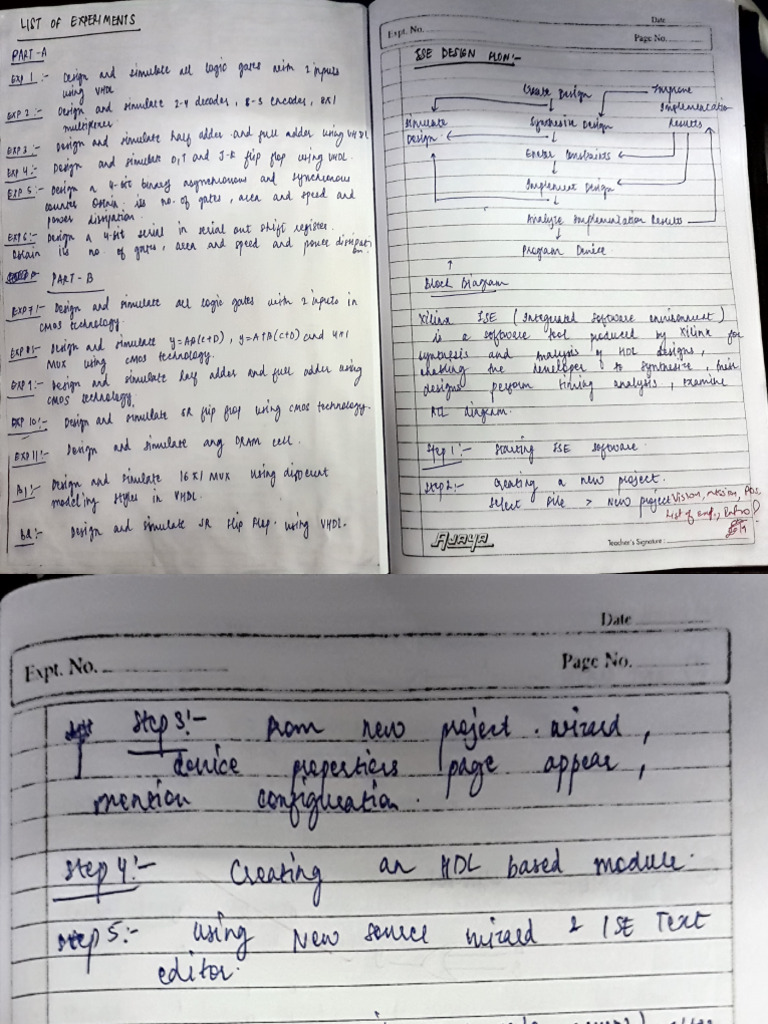 LIST OF EXPERIMENTS
PART-A
Exp 1 :- Design and simulate all logic gates with 2 inputs
using VHDL
EXP 2 :- Design and simulate 2-4 decoder, 8-3 encoder, 8X1
multiplexer
EXP 3 :- Design and simulate half adder and full adder using VHDL
EXP 4 :- Design and simulate D, T and J-K flip flop using VHDL.
EXP 5 :- Design a 4-bit binary asynchronous and synchronous
counter Obtain its no. of gates, area and speed and
power dissipation.
EXP 6 :- Design a 4-bit serial in serial out shift register.
Obtain its no. of gates, area and speed and power dissipation.
PART-B
EXP 7 :- Design and simulate all logic gates with 2 inputs in
CMOS technology.
EXP 8 :- Design and simulate y=AB(C+D), y=A+B(C+D) and 4X1
MUX using CMOS technology.
EXP 9 :- Design and simulate half adder and full adder using
CMOS technology
EXP 10 :- Design and simulate SR flip flop using CMOS technology.
EXP 11 :- Design and simulate any DRAM cell.
B1 :- Design and simulate 16X1 MUX using different
modeling styles in VHDL.
B2 :- Design and simulate SR Flip Flop using VHDL.
Expt. No.
Date
Page No.
ISE DESIGN FLOW:-
Create Design
Improve
Implementation
Results
Simulate
Design
Synthesise Design
Enter Constraints
Implement Design
Analyze Implementation Results
Program Device
Block Diagram
Xilinx ISE (Integrated Software environment)
is a software tool produced by Xilinx for
synthesis and analysis of HDL designs,
enabling the developer to synthesise, their
designs perform timing analysis, examine
RTL diagram.
Step 1 :- Starting ISE software.
Step 2 :- Creating a new project.
Select File > New project
Vision, mission, POs,
List of exp., Intro
AJAYA
Teacher's Signature :
Date
Expt. No.
Page No.
Step 3 :- From new project wizard,
device properties page appear,
mention configuration.
Step 4 :- Creating an HDL based module.
Step 5 :- Using New source wizard & ISE Text
editor.